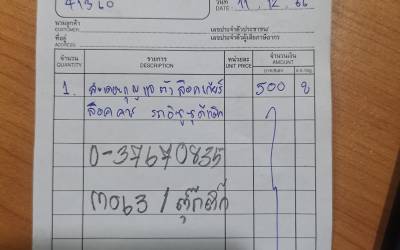 41360
วันที่ 11 . 12 . 66
นามลูกค้า
CUSTOMER
เลขประจำตัวประชาชน/
ที่อยู่
เลขประจำตัวผู้เสียภาษีอากร
ADDRESS
จำนวน รายการ หน่วยละ จำนวนเงิน
QUANTITY DESCRIPTION UNIT PRICE AMOUNT
1. กุญแจ ตัวล็อคเกียร์ 500
ล็อคคาร์ รถอีซูซุ
0-37670835